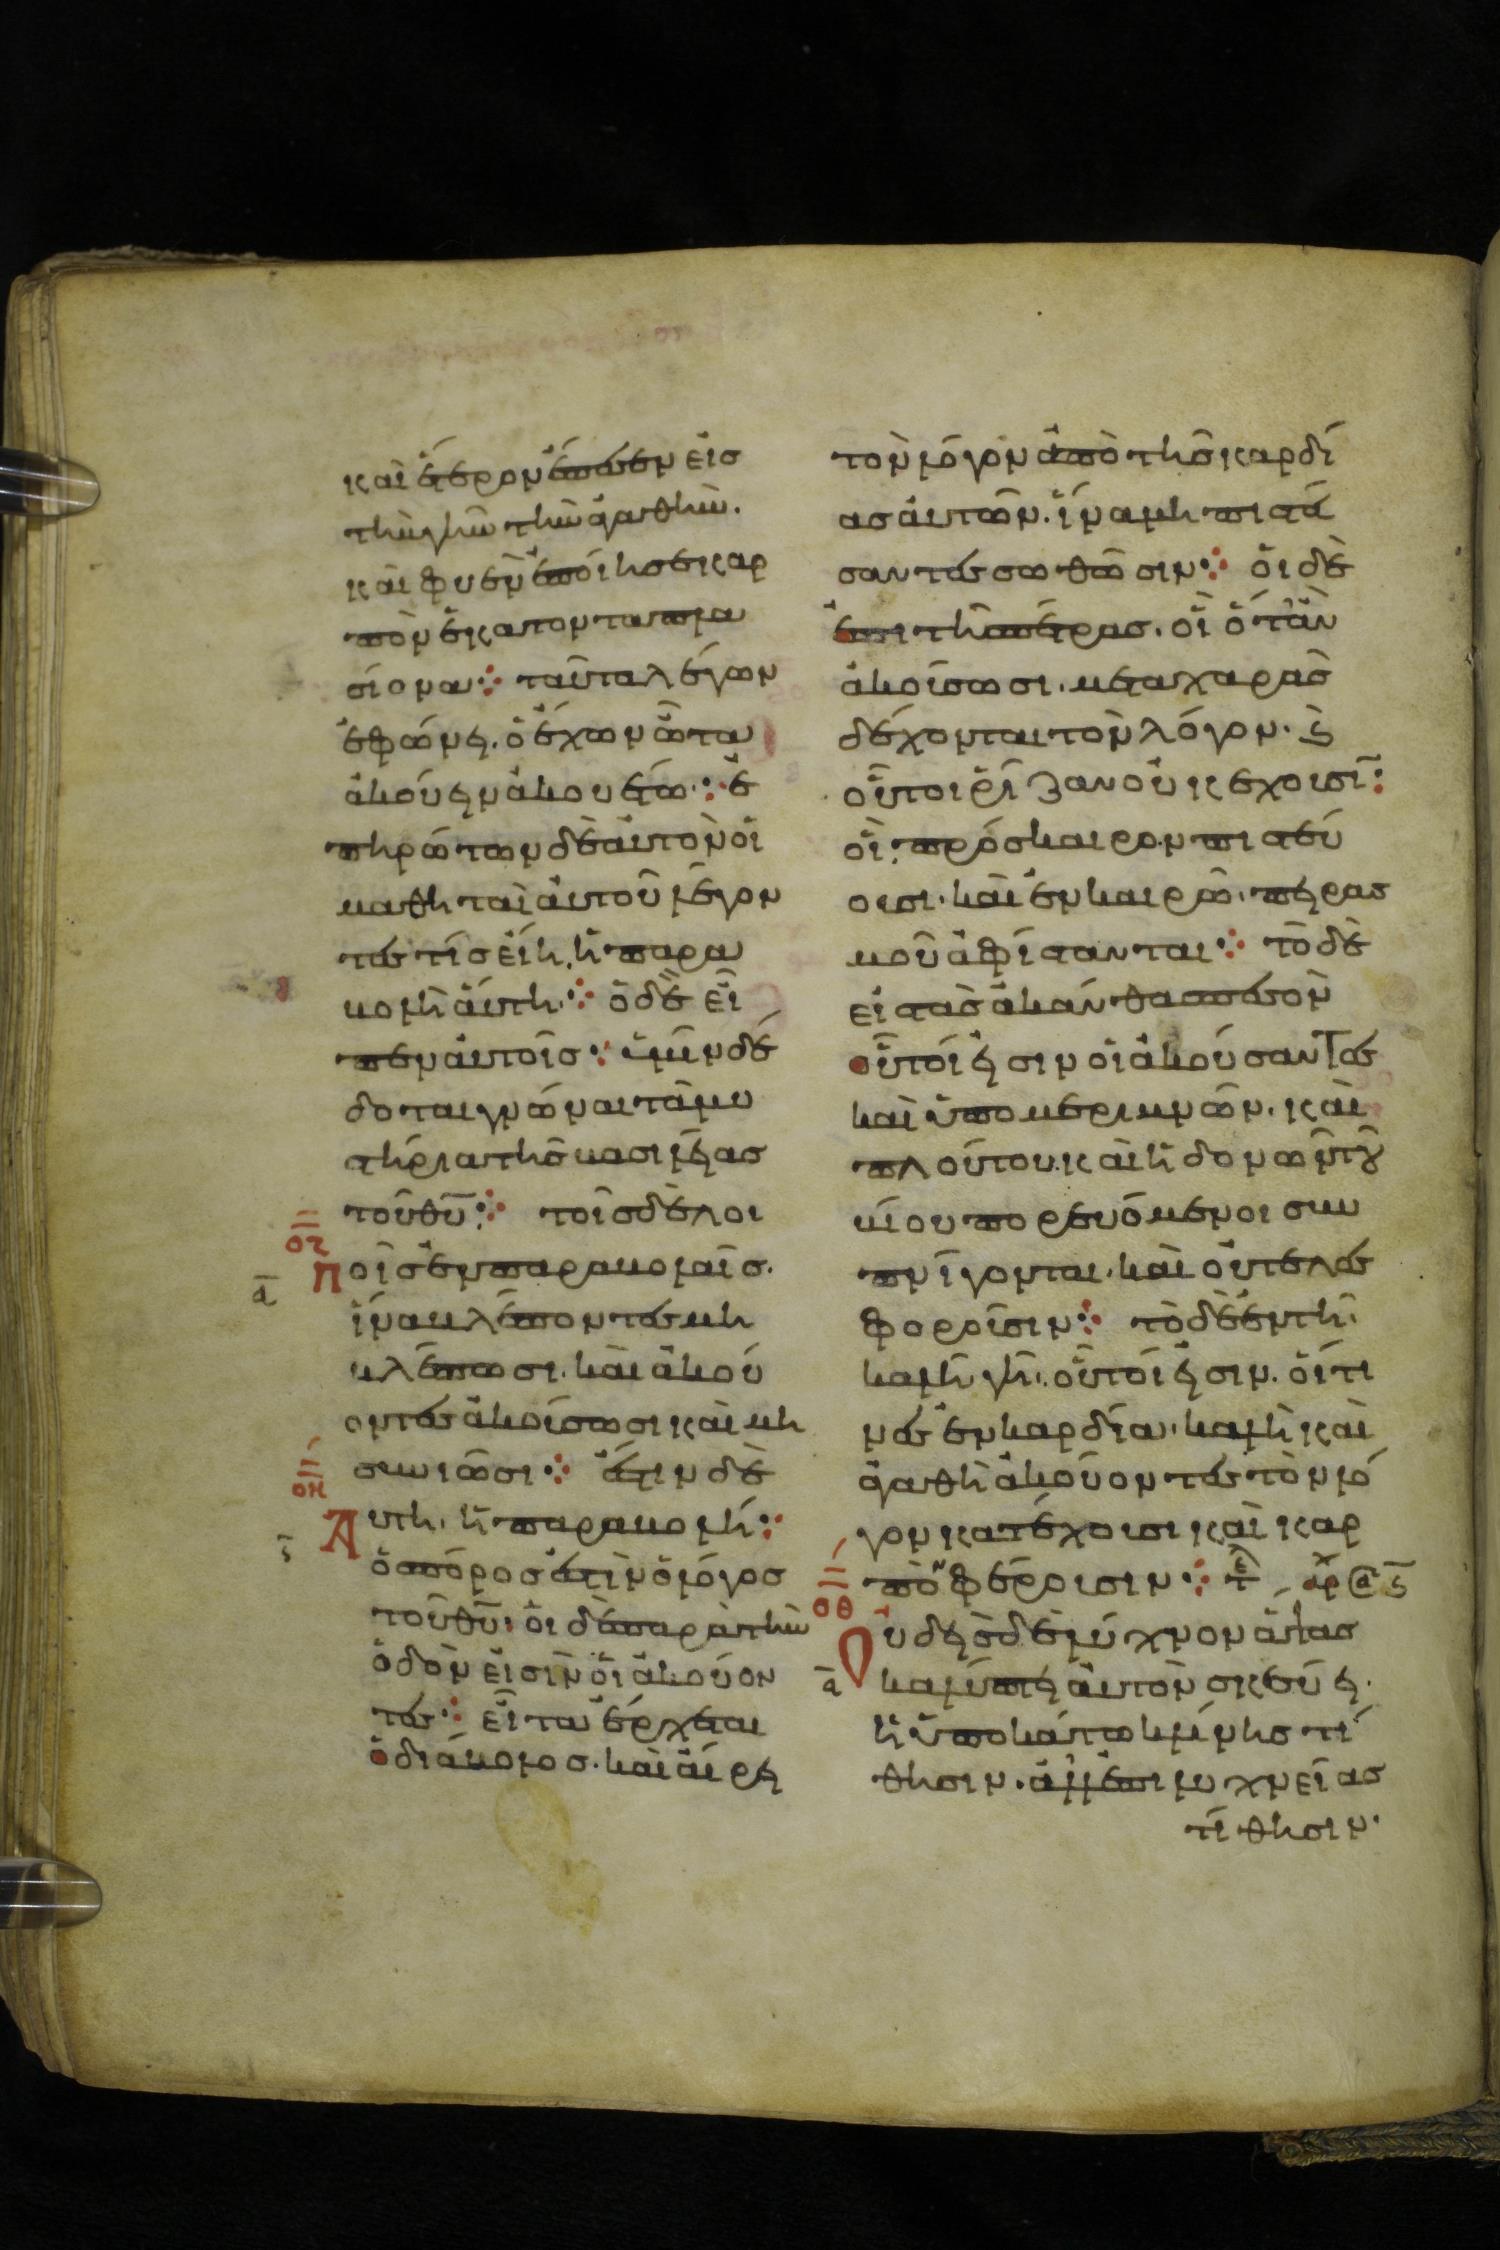 καὶ ἕτερον ἔπεσεν εἰς
τὴν γῆν τὴν ἀγαθήν.
καὶ φυὲν ἐποίησε καρ
πὸν ἑκατονταπλα
σίονα· ταῦτα λέγων
ἐφώνει. ὁ ἔχων ὦτα
ἀκούειν ἀκουέτω· ἐ
πηρώτων δὲ αὐτὸν οἱ
μαθηταὶ αὐτοῦ λέγον
τες τίς εἴη, ἡ παρα
βολὴ αὕτη· ὁ δὲ εἶ
πεν αὐτοῖς· ὑμῖν δέ
δοται γνῶναι τὰ μυ
στήρια τῆς βασιλείας
τοῦ θ̅υ̅· τοῖς δὲ λοι
οζ
α̅ ποῖς ἐν παραβολαῖς.
ἵνα βλέποντες μὴ
βλέπωσι. καὶ ἀκού
οντες ἀκούσωσι καὶ μὴ
συνιῶσι· ἔστιν δὲ
οη
ς̅ Αυτη. ἡ παραβολή·
ὁ σπόρος ἐστὶν ὁ λόγος
τοῦ θ̅υ̅· οἱ δὲ παρὰ τὴν
ὁδὸν εἰσὶν οἱ ἀκούον
τες· εἶτα ἔρχεται
ὁ διάβολος. καὶ αἴρει
τὸν λόγον ἀπὸ τῆς καρδί
ας αὐτῶν. ἵνα μὴ πιστεύ
σαντες σωθῶσιν· οἱ δὲ
ἐπὶ τῆς πέτρας. οἳ ὅταν
ἀκούσωσι. μετα χαρᾶς
δέχονται τὸν λόγον. ϗ
οὗτοι ῥίζαν οὐκ ἔχουσι·
οἳ πρόσκαιρον πιστεύ
ουσι. καὶ ἐν καιρῶ. πειρας
μοῦ ἀφίστανται· τὸ δὲ
εἰς τὰς ἀκάνθας πεσὸν
οὗτοί εἰσιν οἱ ἀκούσαντες
καὶ ὑπο μεριμνῶν. καὶ
πλούτου. καὶ ἡδονῶν τοῦ
βίου πορευόμενοι συμ
πνίγονται. καὶ οὐ τελες
φοροῦσιν· τὸ δὲ ἐν τῆ
καλῆ γῆ. οὗτοί εἰσιν. οἵτι
νες ἐν καρδία. καλῆ καὶ
ἀγαθῆ ἀκούοντες τὸν λό
γον κατέχουσι καὶ καρ
ποφοροῦσιν· τε αρ ς̅
οθ
α̅ Ουδεὶς δὲ λύχνον ἅψας
καλύπτει αὐτὸν σκεύει.
ἢ ὑποκάτω κλίνης τί
θησιν. ἀλλ' ἐπι λυχνείας
τίθησιν·